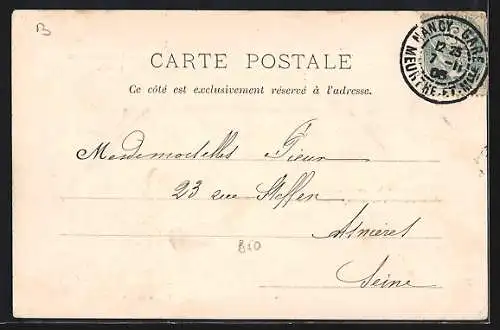 B
NANCY-GARE
12 25
7 -11
05
MEURTHE-ET-MLLE
CARTE POSTALE
Ce côté est exclusivement réservé à l'adresse.
Mesdemoiselles
23 rue Steffen
Asnières
810
Seine